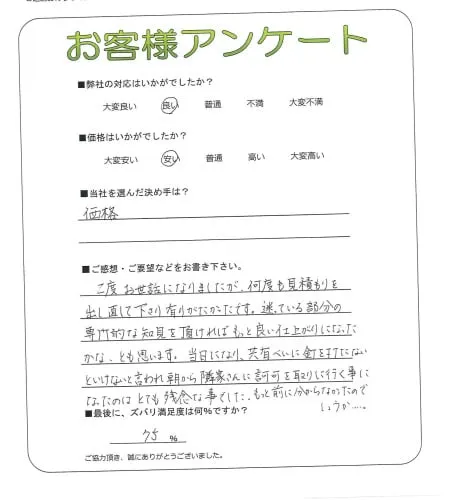 お客様アンケート
■弊社の対応はいかがでしたか？
大変良い 良い 普通 不満 大変不満
■価格はいかがでしたか？
大変安い 安い 普通 高い 大変高い
■当社を選んだ決め手は？
価格
■ご感想・ご要望などをお書き下さい。
2度お世話になりましたが、何度も見積もりを
出し直して下さり有りがたかったです。迷っている部分の
専門的な知見を頂ければもっと良い仕上がりになった
かな、とも思います。当日になり、共有べいに金を
といけないと言われ朝から隣家さんに許可を取りに行く事に
なったのはとても残念な事でした。もっと前に分からなかったので
しょうか……。
■最後に、ズバリ満足度は何%ですか？
75 %
ご協力頂き、誠にありがとうございました。